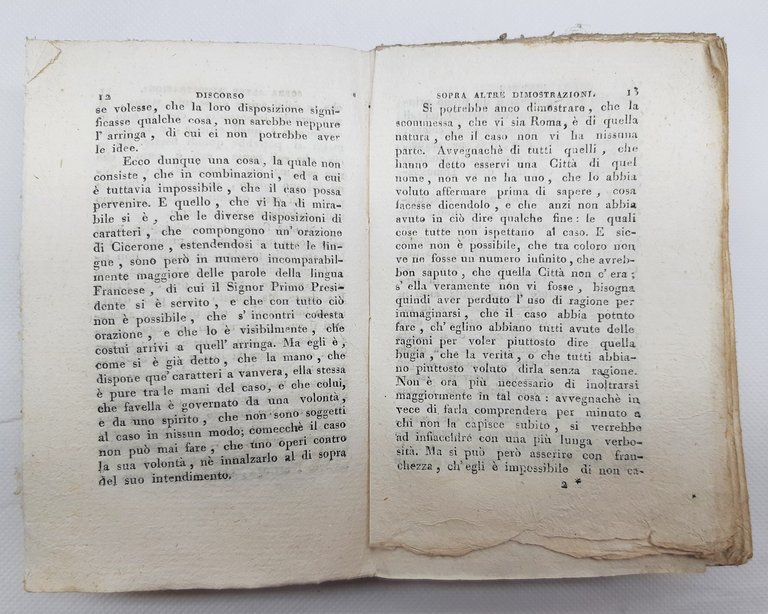 12 DISCORSO
se volesse, che la loro disposizione signi-
ficasse qualche cosa, non sarebbe neppure
l'arringa, di cui ei non potrebbe aver
le idee.
Ecco dunque una cosa, la quale non
consiste, che in combinazioni, ed a cui
è tuttavia impossibile, che il caso possa
pervenire. E quello, che vi ha di mira-
bile si è, che le diverse disposizioni di
caratteri, che compongono un'orazione
di Cicerone, estendendosi a tutte le lin-
gue, sono però in numero incomparabil-
mente maggiore delle parole della lingua
Francese, di cui il Signor Primo Presi-
dente si è servito, e che con tutto ciò
non è possibile, che s'incontri codesta
orazione, e che lo è visibilmente, che
costui arrivi a quell'arringa. Ma egli è,
come si è già detto, che la mano, che
dispone que' caratteri a vanvera, ella stessa
è pure tra le mani del caso, e che colui,
che favella è governato da una volontà,
e da uno spirito, che non sono soggetti
al caso in nissun modo; comecchè il caso
non può mai fare, che uno operi contro
la sua volontà, nè innalzarlo al di sopra
del suo intendimento.
SOPRA ALTRE DIMOSTRAZIONI. 13
Si potrebbe anco dimostrare, che la
scommessa, che vi sia Roma, è di quella
natura, che il caso non vi ha nissuna
parte. Avvegnachè di tutti quelli, che
hanno detto esservi una Città di quel
nome, non ve ne ha uno, che lo abbia
voluto affermare prima di sapere, cosa
facesse dicendolo, e che anzi non abbia
avuto in ciò dire qualche fine: le quali
cose tutte non ispettano al caso. E sic-
come non è possibile, che tra coloro non
ve ne fosse un numero infinito, che avreb-
bon saputo, che quella Città non c'era;
s'ella veramente non vi fosse, bisogna
quindi aver perduto l'uso di ragione per
immaginarsi, che il caso abbia potuto
fare, ch'eglino abbiano tutti avute delle
ragioni per voler piuttosto dire quella
bugia, che la verità, o che tutti abbia-
no piuttosto voluto dirla senza ragione.
Non è ora più necessario di inoltrarsi
maggiormente in tal cosa: avvegnachè in
vece di farla comprendere per minuto a
chi non la capisce subito, si verrebbe
ad infiacchire con una più lunga verbo-
sità. Ma si può però asserire con fran-
chezza, ch'egli è impossibile di non ca-
2 *